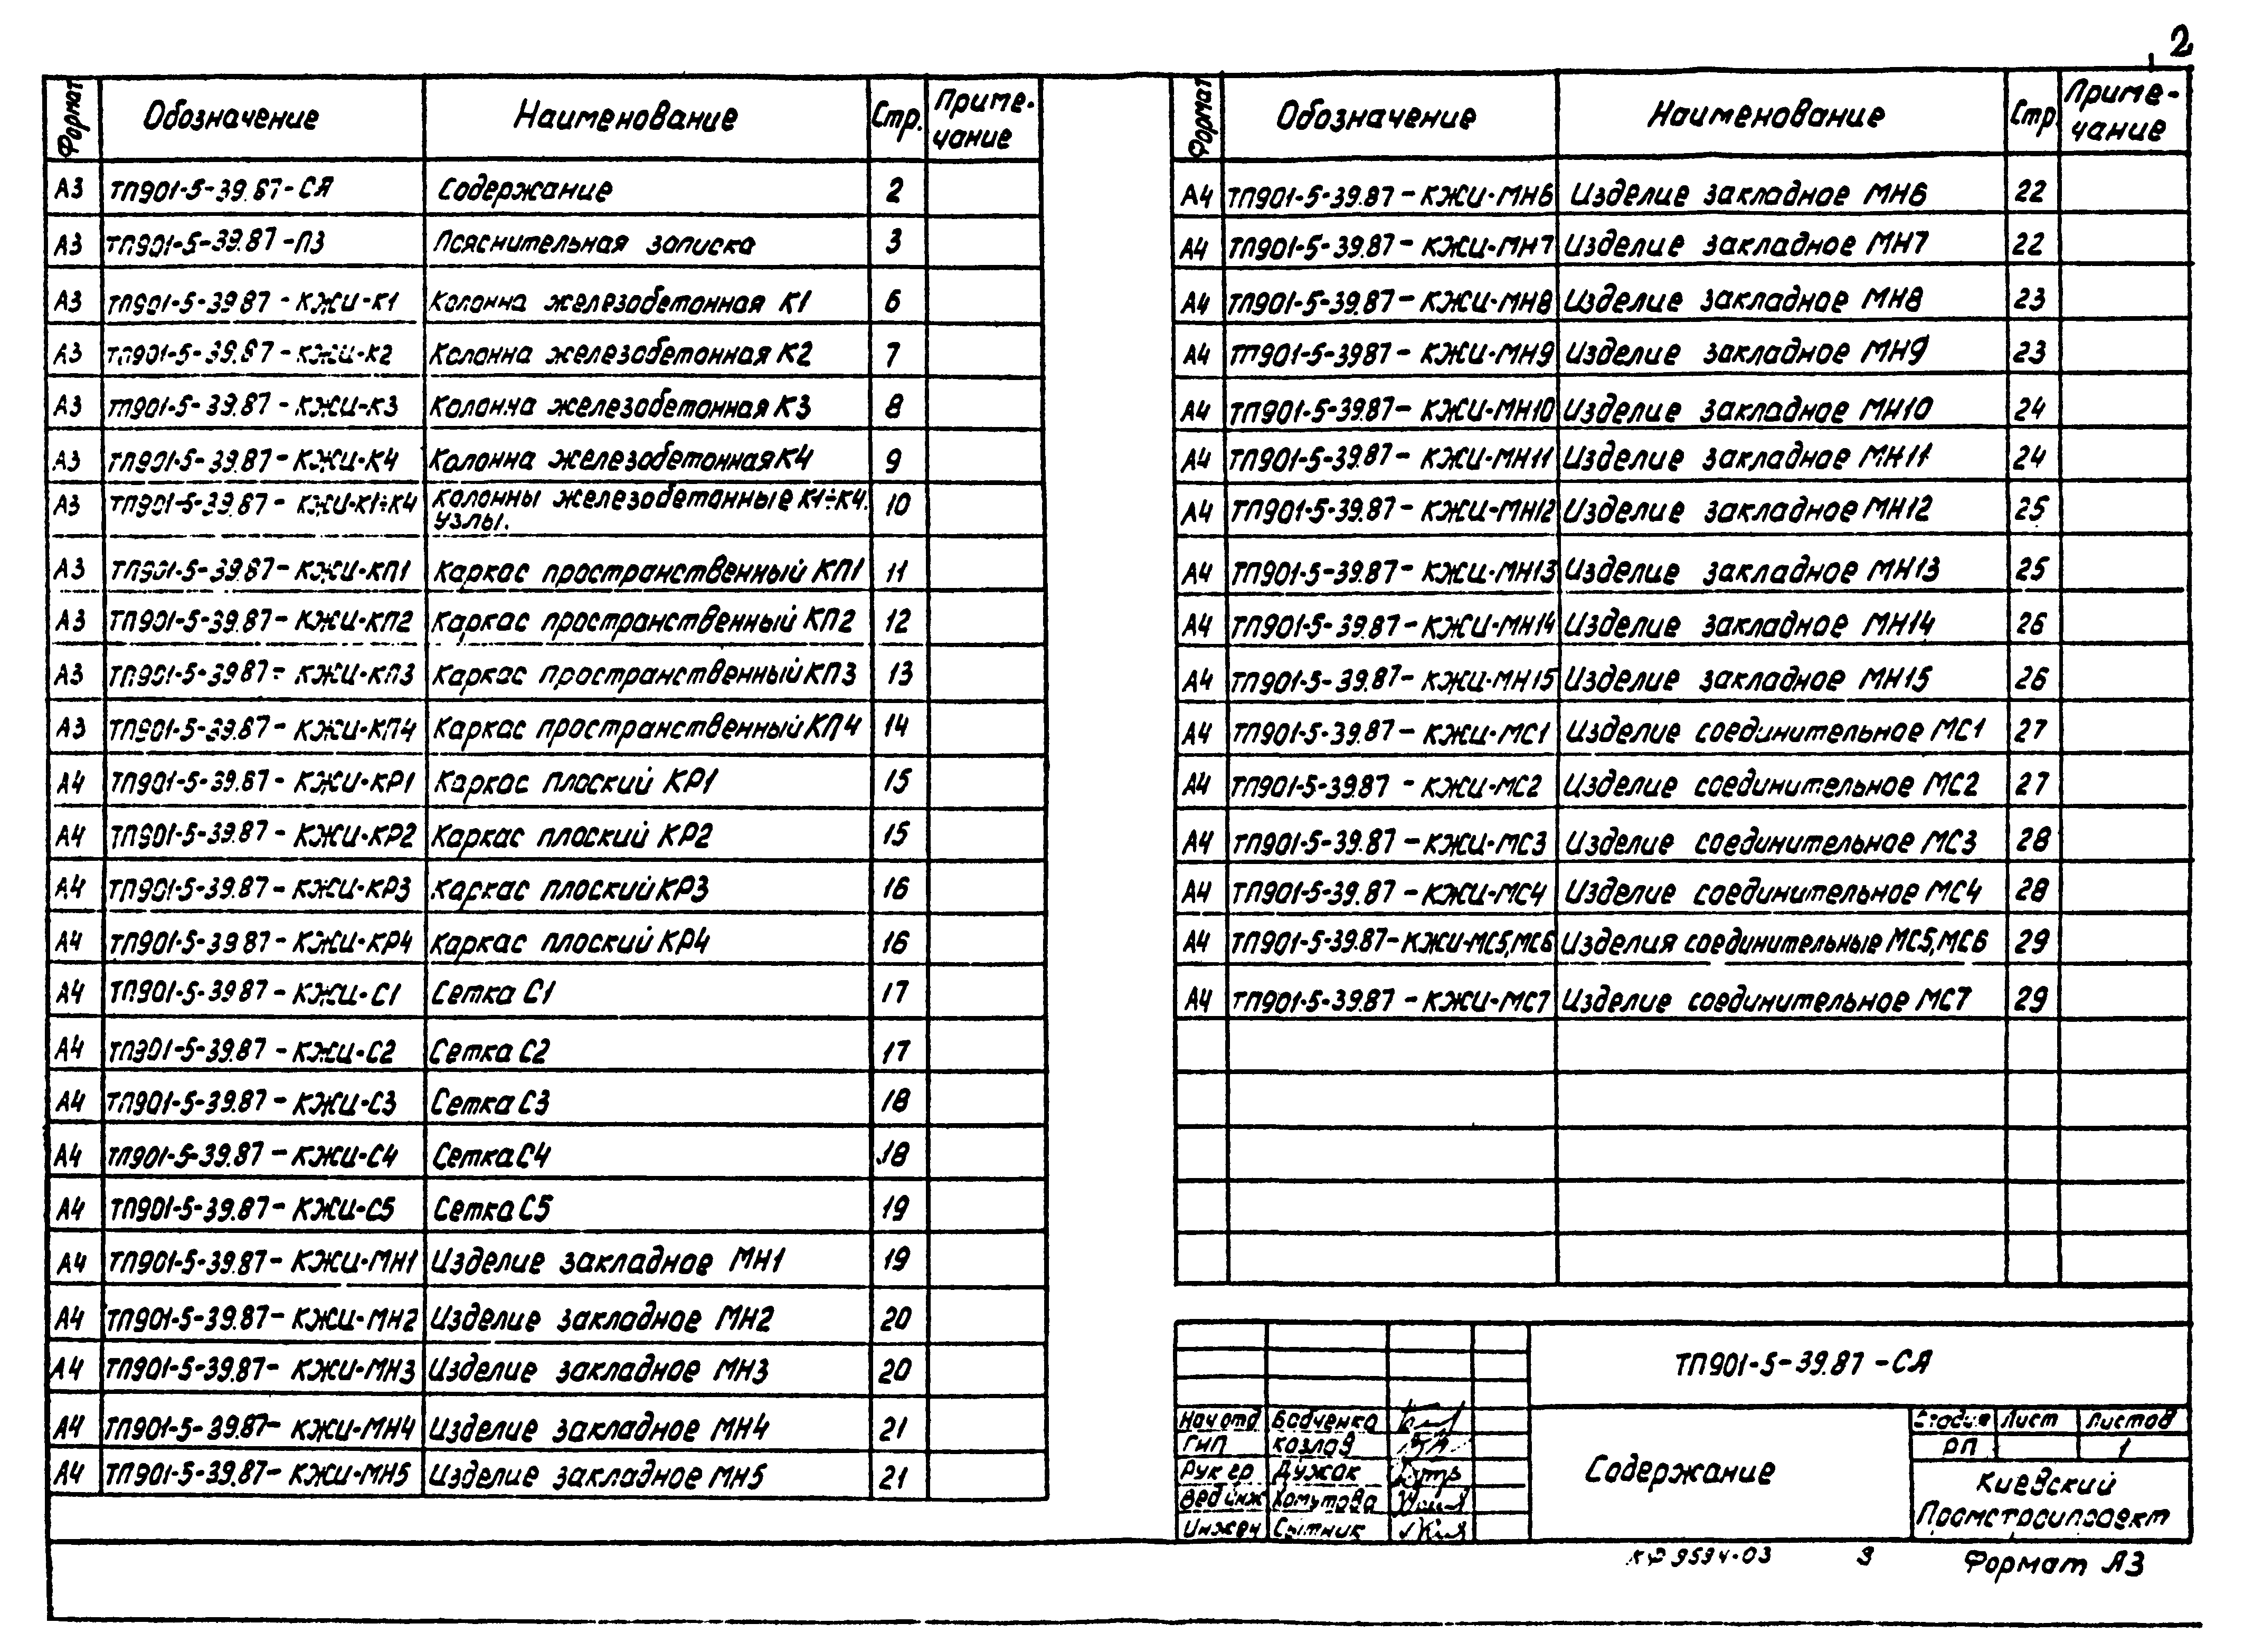 2
Формат Обозначение Наименование Стр. Приме-чание
А3 ТП901-5-39.87-СЯ Содержание 2
А3 ТП901-5-39.87-ПЗ Пояснительная записка 3
А3 ТП901-5-39.87-КЖИ-К1 Колонна железобетонная К1 6
А3 ТП901-5-39.87-КЖИ-К2 Колонна железобетонная К2 7
А3 ТП901-5-39.87-КЖИ-К3 Колонна железобетонная К3 8
А3 ТП901-5-39.87-КЖИ-К4 Колонна железобетонная К4 9
А3 ТП901-5-39.87-КЖИ-К1÷К4 Колонны железобетонные К1÷К4. 10
Узлы.
А3 ТП901-5-39.87-КЖИ-КП1 Каркас пространственный КП1 11
А3 ТП901-5-39.87-КЖИ-КП2 Каркас пространственный КП2 12
А3 ТП901-5-39.87-КЖИ-КП3 Каркас пространственный КП3 13
А3 ТП901-5-39.87-КЖИ-КП4 Каркас пространственный КП4 14
А4 ТП901-5-39.87-КЖИ-КР1 Каркас плоский КР1 15
А4 ТП901-5-39.87-КЖИ-КР2 Каркас плоский КР2 15
А4 ТП901-5-39.87-КЖИ-КР3 Каркас плоский КР3 16
А4 ТП901-5-39 87-КЖИ-КР4 Каркас плоский КР4 16
А4 ТП901-5-39 87-КЖИ-С1 Сетка С1 17
А4 ТП901-5-39.87-КЖИ-С2 Сетка С2 17
А4 ТП901-5-39.87-КЖИ-С3 Сетка С3 18
А4 ТП901-5-39.87-КЖИ-С4 Сетка С4 18
А4 ТП901-5-39.87-КЖИ-С5 Сетка С5 19
А4 ТП901-5-39.87-КЖИ-МН1 Изделие закладное МН1 19
А4 ТП901-5-39.87-КЖИ-МН2 Изделие закладное МН2 20
А4 ТП901-5-39.87-КЖИ-МН3 Изделие закладное МН3 20
А4 ТП901-5-39.87-КЖИ-МН4 Изделие закладное МН4 21
А4 ТП901-5-39.87-КЖИ-МН5 Изделие закладное МН5 21
Формат Обозначение Наименование Стр Приме-чание
А4 ТП901-5-39.87-КЖИ-МН6 Изделие закладное МН6 22
А4 ТП901-5-39.87-КЖИ-МН7 Изделие закладное МН7 22
А4 ТП901-5-39.87-КЖИ-МН8 Изделие закладное МН8 23
А4 ТП901-5-3987-КЖИ-МН9 Изделие закладное МН9 23
А4 ТП901-5-39.87-КЖИ-МН10 Изделие закладное МН10 24
А4 ТП901-5-39.87-КЖИ-МН11 Изделие закладное МН11 24
А4 ТП901-5-39.87-КЖИ-МН12 Изделие закладное МН12 25
А4 ТП901-5-39.87-КЖИ-МН13 Изделие закладное МН13 25
А4 ТП901-5-39.87-КЖИ-МН14 Изделие закладное МН14 26
А4 ТП901-5-39.87-КЖИ-МН15 Изделие закладное МН15 26
А4 ТП901-5-39.87-КЖИ-МС1 Изделие соединительное МС1 27
А4 ТП901-5-39.87-КЖИ-МС2 Изделие соединительное МС2 27
А4 ТП901-5-39.87-КЖИ-МС3 Изделие соединительное МС3 28
А4 ТП901-5-39.87-КЖИ-МС4 Изделие соединительное МС4 28
А4 ТП901-5-39.87-КЖИ-МС5,МС6 Изделия соединительные МС5,МС6 29
А4 ТП901-5-39.87-КЖИ-МС7 Изделие соединительное МС7 29
ТП901-5-39.87-СЯ
Нач отд Бабченко
ГИП Козлов
Рук гр Дужак
Вед инж Хомутова
Инжен Сытник
Содержание
Стадия Лист Листов
РП 1
Киевский
Промстройпроект
КФ 9594-03 3 Формат А3